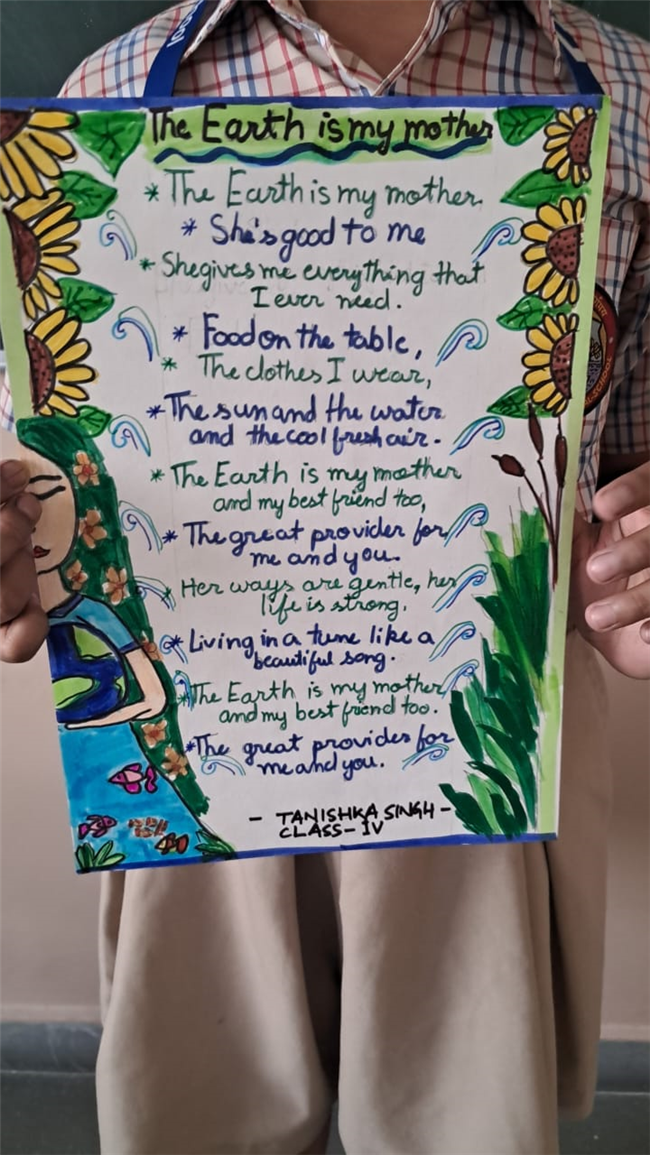 The Earth is my mother
* The Earth is my mother.
* She's good to me
* She gives me everything that
I ever need.
* Food on the table,
* The clothes I wear,
* The sun and the water
and the cool fresh air.
* The Earth is my mother
and my best friend too,
* The great provider for
me and you.
* Her ways are gentle, her
life is strong.
* Living in a tune like a
beautiful song.
* The Earth is my mother
and my best friend too.
* The great provides for
me and you.
- TANISHKA SINGH -
CLASS - IV